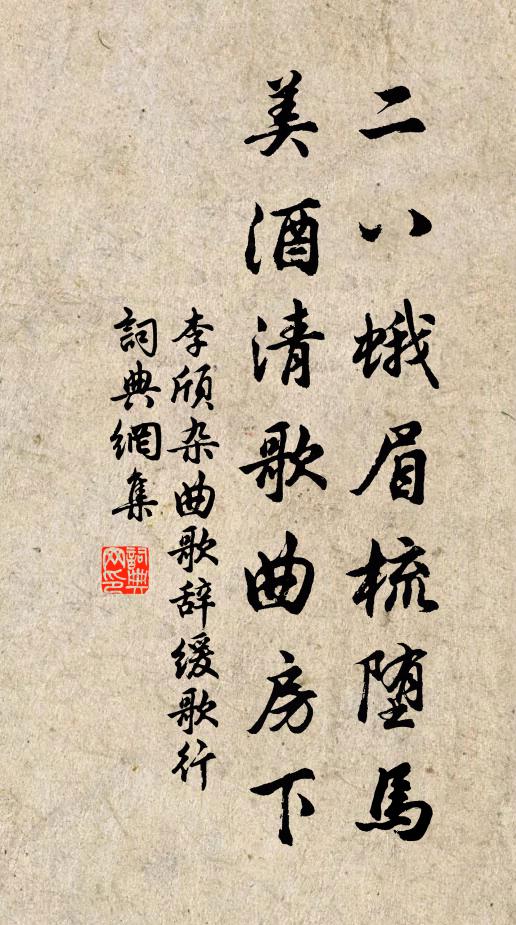 二八蛾眉梳堕馬
美酒清歌曲房下
李頎杂曲歌辞缓歌行
詞典網集
詞典网印